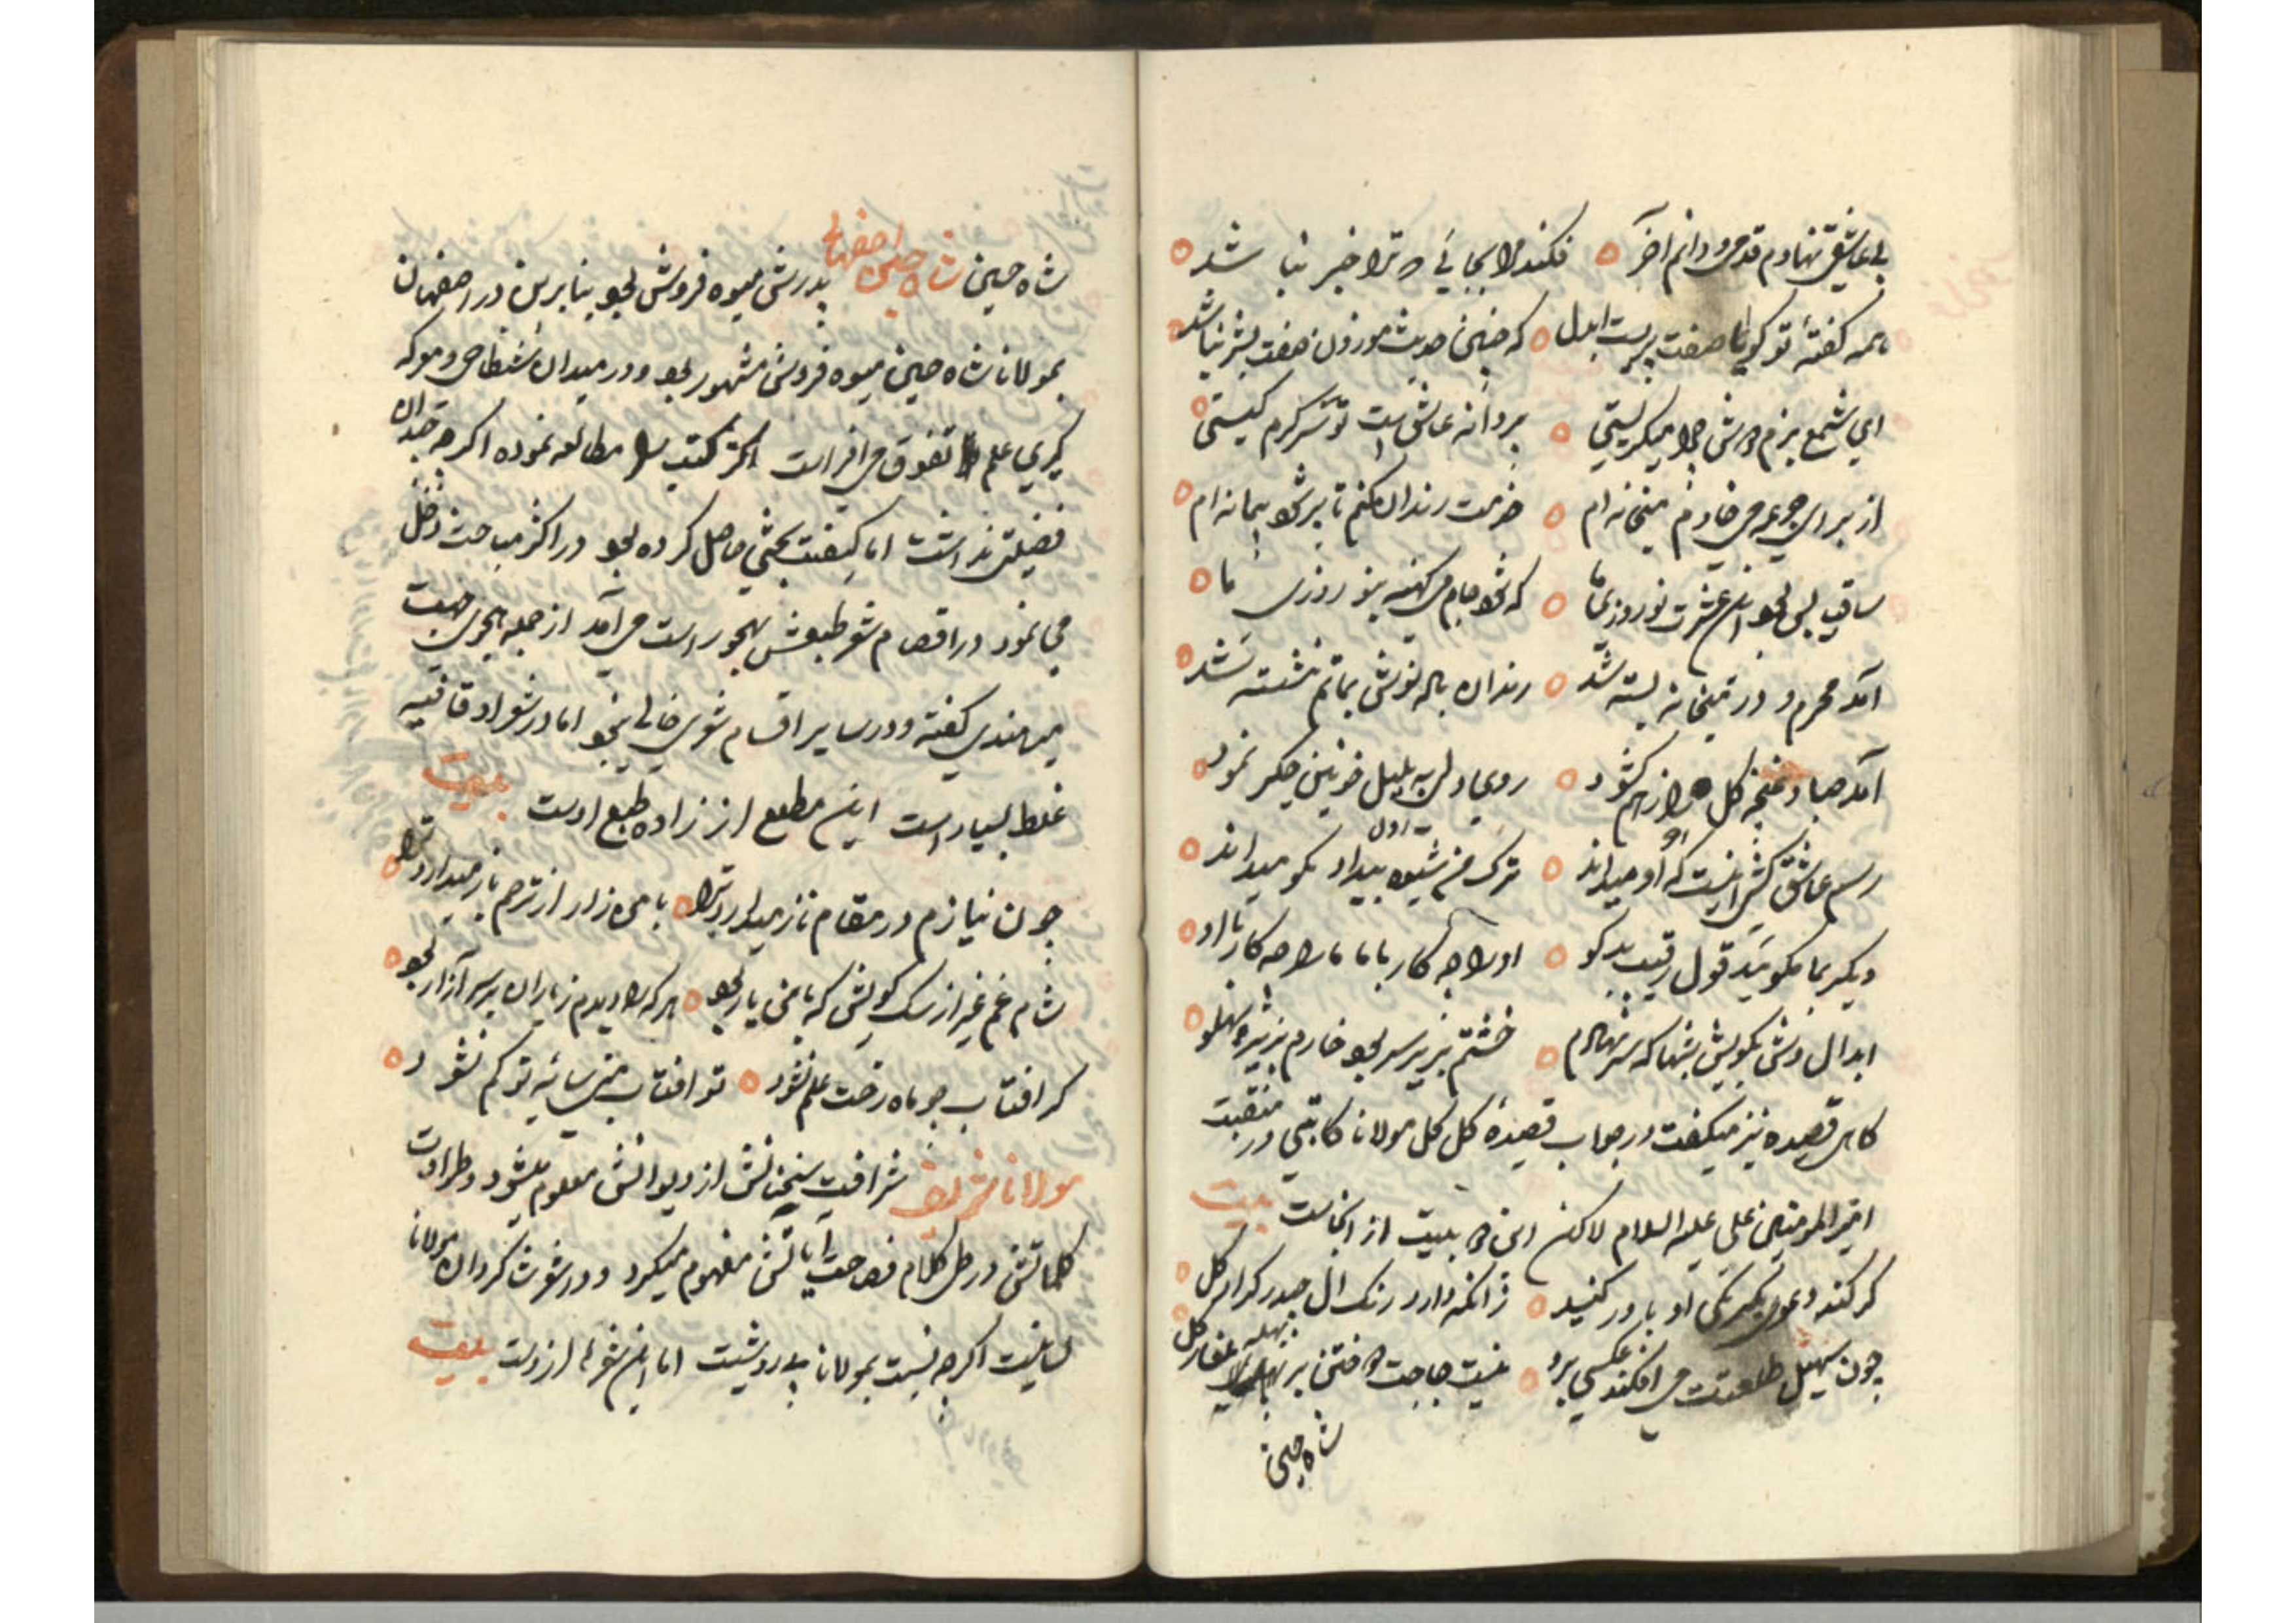 بی عاشقی نهادم قدمی و دانم آخر ه فکند مرا بجائی که ترا خبر نباشد ه
همه گفتهٔ تو گویا صفت پریست ابدل ه که چنین حدیث موزون صفت بشر نباشد ه
ای شمع بزم دوش چرا میگریستی ه پروانه عاشق است تو سرگرم کیستی ه
از برای جرعه می خادم میخانه ام ه خدمت رندان کنم تا پر شود پیمانه ام ه
ساقیا بس بود این عشرت نوروزی ما ه که شود جام می کهنه نو روزی ما ه
آمد محرم و در میخانه بسته شد ه رندان باله نوش بماتم نشسته شد ه
آمد صبا و غنچه گل را ز هم گشود ه روی و دلی به بلبل خونین جگر نمود ه
رسم عاشق کشی اینست که او میداند ه ترک من شیوه بیداد نکو میداند ه
دیگر بما مگوئید قول رقیب بدگو ه او را چه کار با ما ما را چه کار با او ه
ابدال دوش بکویش شبها که سر نهادم ه خشتم بزیر سر بود خارم بزیر پهلو ه
کاهی قصیده نیز میگفت در جواب قصیدهٔ گل گل مولانا کاتبی در منقبت
امیرالمومنین علی علیه السلام لاکن این دو بیت از انجاست بیت
گر کند دعوی یکرنگی او باور کنید ه زانکه دارد رنگ آل حیدر کرار گل ه
چون سهیل طلعتت می افکند عکسی برو ه نیست حاجت دوختن بر بهله غفار گل
شاه حسین
شاه حسین شاه حسین اصفهانی پدرش میوه فروش بود بنابرین در اصفهان
بمولانا شاه حسین میوه فروش مشهور بود و در میدان شطاحی و معرکه
گیری علم تفوق می افراشت اکثر کتب را مطالعه نموده اگرچه چندان
فضیلتی نداشت اما کیفیت بحثی حاصل کرده بود در اکثر مباحث دخل
می نمود در اقسام شعر طبعش بهجو راست می آمد از جمله هجوی جهت
میر هندی گفته و در سایر اقسام شعری خالی نبود اما در شعر او قافیه
غلط بسیار است این مطلع از زاده طبع اوست بیت
چون نیازم در مقام ناز میدارد ترا ه با من زار از ترحم باز میدارد ترا ه
شام غم غیر از سگ کویش که با من یار بود ه هر که را دیدم ز یاران بر سر آزار بود ه
گر افتاب چو ماه رخت علم نشود ه تو افتاب منی سایهٔ تو کم نشود ه
مولانا شریف شرافت سخنانش از دیوانش معلوم میشود و طراوت
کلماتش در طی کلام فصاحت آیاتش مفهوم میگردد و در شعر شاگردان مولانا
لسانیست اگرچه نسبت بمولانا بی روشیست اما این شعرها ازوست بیت